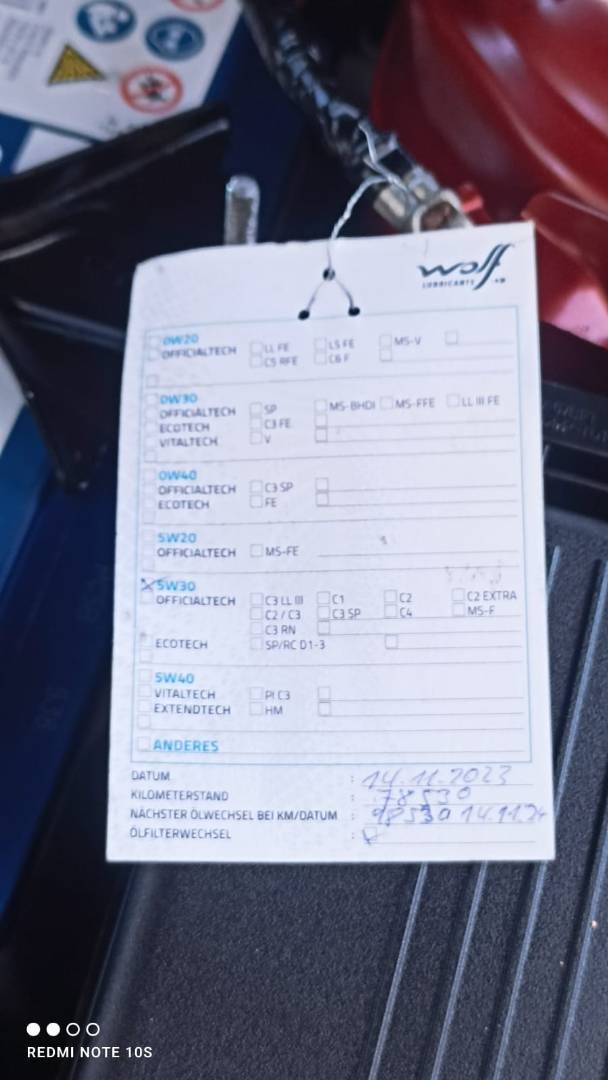 wolf
LUBRICANTS
0W20
OFFICIALTECH LL FE LS FE MS-V
C5 RFE C6 F
0W30
OFFICIALTECH SP MS-BHDI MS-FFE LL III FE
ECOTECH C3 FE
VITALTECH V
0W40
OFFICIALTECH C3 SP
ECOTECH FE
5W20
OFFICIALTECH MS-FE
X 5W30
OFFICIALTECH C3 LL III C1 C2 C2 EXTRA
C2 / C3 C3 SP C4 MS-F
C3 RN
ECOTECH SP/RC D1-3
5W40
VITALTECH PI C3
EXTENDTECH HM
ANDERES
DATUM : 14.11.2023
KILOMETERSTAND : 78530
NÄCHSTER ÖLWECHSEL BEI KM/DATUM : 98530 14.11.24
ÖLFILTERWECHSEL :
REDMI NOTE 10S